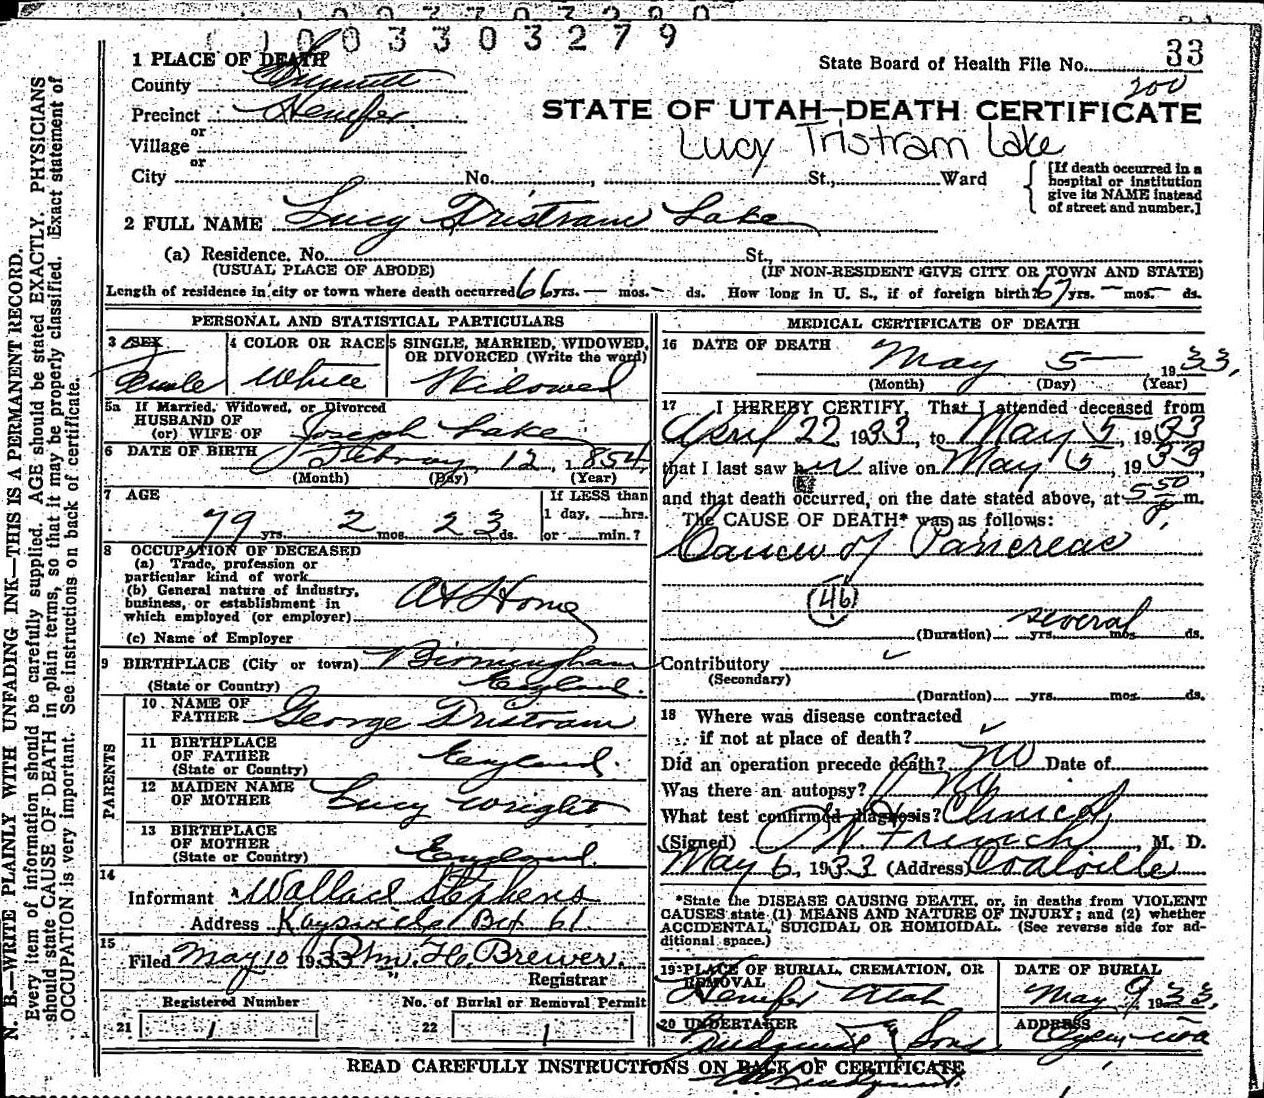 1003303279
1 PLACE OF DEATH
State Board of Health File No. 33
200
County Summit
Precinct Henefer
STATE OF UTAH—DEATH CERTIFICATE
or
Village
Lucy Tristram Lake
or
City No. , St., Ward
[If death occurred in a hospital or institution give its NAME instead of street and number.]
2 FULL NAME Lucy Tristram Lake
(a) Residence. No. St.,
(USUAL PLACE OF ABODE) (IF NON-RESIDENT GIVE CITY OR TOWN AND STATE)
Length of residence in city or town where death occurred 66 yrs. — mos. — ds. How long in U. S., if of foreign birth? 67 yrs. — mos. — ds.
PERSONAL AND STATISTICAL PARTICULARS
3 SEX
Female
4 COLOR OR RACE
White
5 SINGLE, MARRIED, WIDOWED, OR DIVORCED (Write the word)
Widowed
5a If Married, Widowed, or Divorced
HUSBAND OF
(or) WIFE OF Joseph Lake
6 DATE OF BIRTH February 12, 1854
(Month) (Day) (Year)
7 AGE
79 yrs. 2 mos. 23 ds.
If LESS than
1 day, hrs.
or min.?
8 OCCUPATION OF DECEASED
(a) Trade, profession or
particular kind of work
(b) General nature of industry,
business, or establishment in
which employed (or employer)
At Home
(c) Name of Employer
9 BIRTHPLACE (City or town) Birmingham
(State or Country) England.
PARENTS
10 NAME OF
FATHER George Tristram
11 BIRTHPLACE
OF FATHER England.
(State or Country)
12 MAIDEN NAME
OF MOTHER Lucy Wright
13 BIRTHPLACE
OF MOTHER England.
(State or Country)
14
Informant Wallace Stephens
Address Kaysville Box 61
15
Filed May 10 1933 Wm. H. Brewer.
Registrar
Registered Number No. of Burial or Removal Permit
21 1 22 1
MEDICAL CERTIFICATE OF DEATH
16 DATE OF DEATH
May 5 1933.
(Month) (Day) (Year)
17 I HEREBY CERTIFY, That I attended deceased from
April 22 1933, to May 5, 1933
that I last saw her alive on May 5, 1933
and that death occurred, on the date stated above, at 5 50 P m.
The CAUSE OF DEATH* was as follows:
Cancer of Pancreas
(46)
several
(Duration) yrs. mos. ds.
Contributory
(Secondary)
(Duration) yrs. mos. ds.
18 Where was disease contracted
if not at place of death?
Did an operation precede death? No Date of
Was there an autopsy? No
What test confirmed diagnosis? Clinical
(Signed) French, M. D.
May 6, 1933 (Address) Coalville
*State the DISEASE CAUSING DEATH, or, in deaths from VIOLENT
CAUSES state (1) MEANS AND NATURE OF INJURY; and (2) whether
ACCIDENTAL, SUICIDAL OR HOMICIDAL. (See reverse side for ad-
ditional space.)
19 PLACE OF BURIAL, CREMATION, OR
REMOVAL
Henefer Utah
DATE OF BURIAL
May 9, 1933.
20 UNDERTAKER
& Sons
ADDRESS
Ogden Utah
READ CAREFULLY INSTRUCTIONS ON BACK OF CERTIFICATE
N. B.—WRITE PLAINLY WITH UNFADING INK—THIS IS A PERMANENT RECORD.
Every item of information should be carefully supplied. AGE should be stated EXACTLY. PHYSICIANS
should state CAUSE OF DEATH in plain terms, so that it may be properly classified. Exact statement of
OCCUPATION is very important. See instructions on back of certificate.